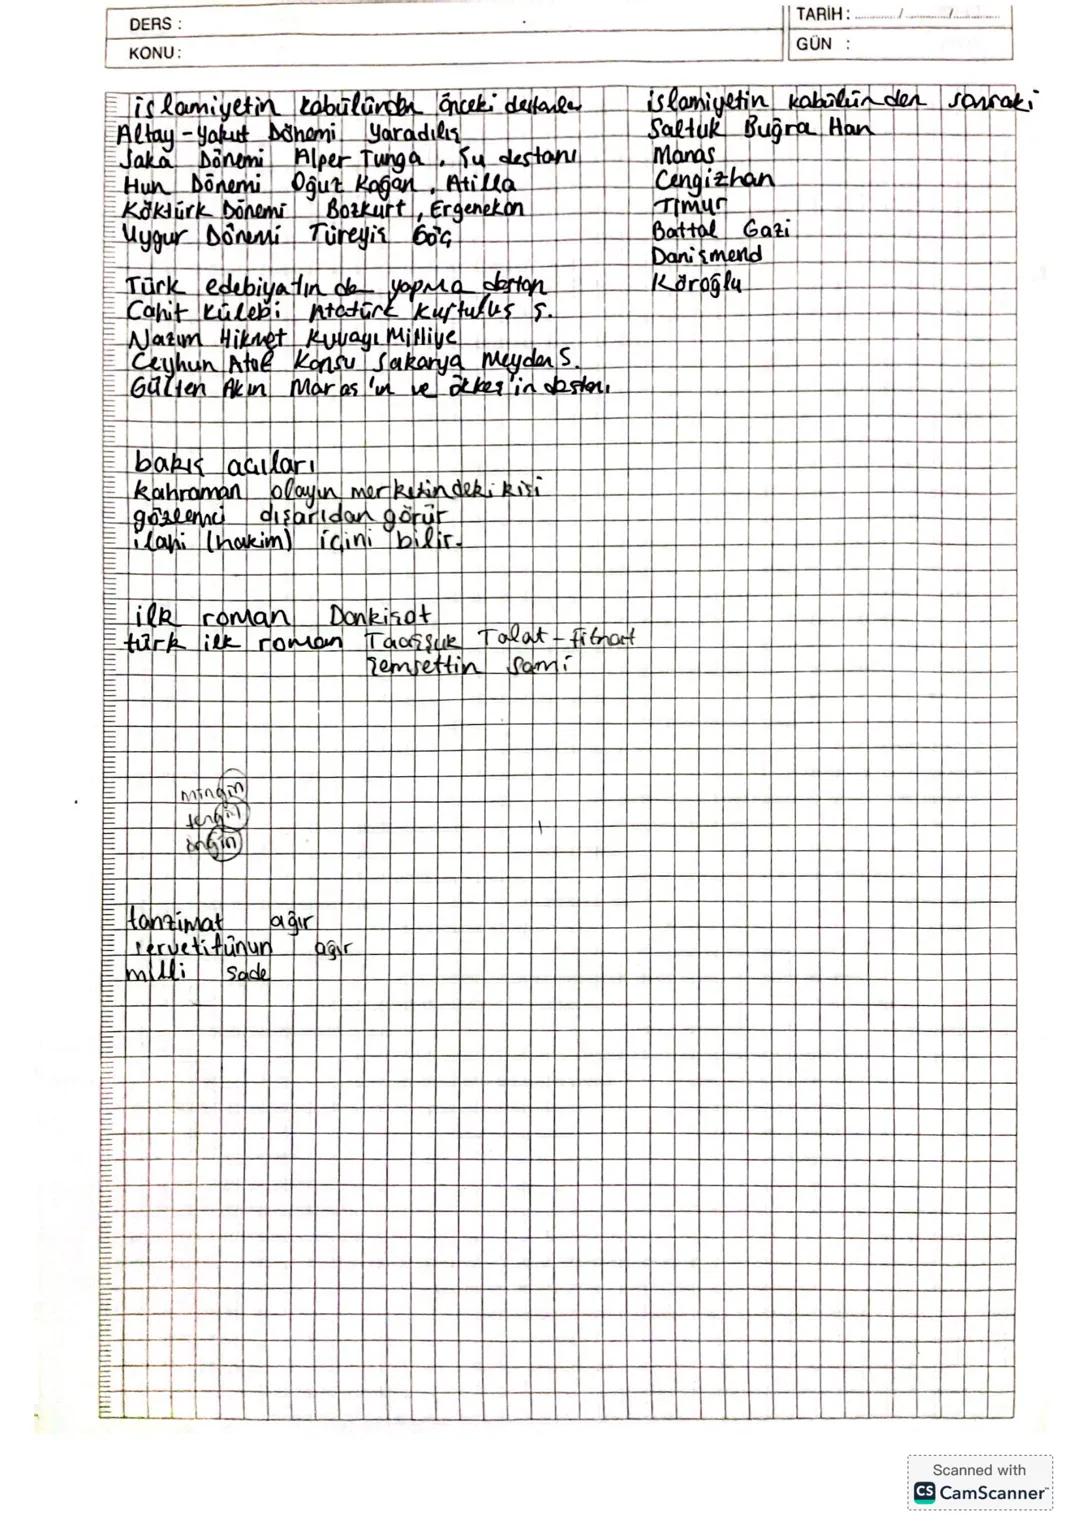 DERS :
KONU:
TARİH: ........../........../..........
GÜN :
islamiyetin kabülünden önceki destanlar
Altay-Yakut Dönemi Yaradılış
Saka Dönemi Alper Tunga, Şu destanı
Hun Dönemi Oğuz Kağan, Atilla
Köktürk Dönemi Bozkurt, Ergenekon
Uygur Dönemi Türeyiş Göç
islamiyetin kabülünden sonraki
Saltuk Buğra Han
Manas
Cengizhan
Timur
Battal Gazi
Danişmend
Köroğlu
Türk edebiyatında yapma destan
Cahit Külebi Atatürk Kurtuluş S.
Nazım Hikmet Kuvayı Milliye
Ceyhun Atuf Kansu Sakarya Meydan S.
Gülten Akın Maraş'ın ve Ökkeş'in destanı
bakış açıları
kahraman olayın merkezindeki kişi
gözlemci dışarıdan görür
ilahi (hakim) içini bilir.
ilk roman Donkişot
türk ilk roman Taaşşuk Talat-Fitnat
Şemsettin Sami
mingin
sengin
öngin
tanzimat ağır
servetifünun ağır
milli sade
Scanned with
CS CamScanner